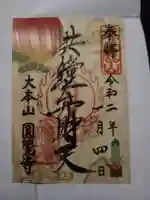 奉拝
令和二年
一月四日
弁財天
大本山 圓覚寺